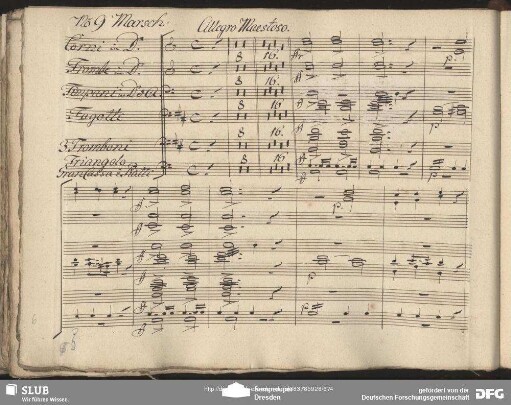 No 9 Marsch. Allegro Maestoso.
Corni in D.
8 16.
Trombe in D.
8 16.
Timpani in D et A
8 16.
Fagotti
8 16.
3 Tromboni
8 16.
Triangolo
Gran Cassa e Piatti
8 16.
p.
p
p.
p
p
SLUB
Wir führen Wissen.
Dresden
gefördert von der
Deutschen Forschungsgemeinschaft
DFG